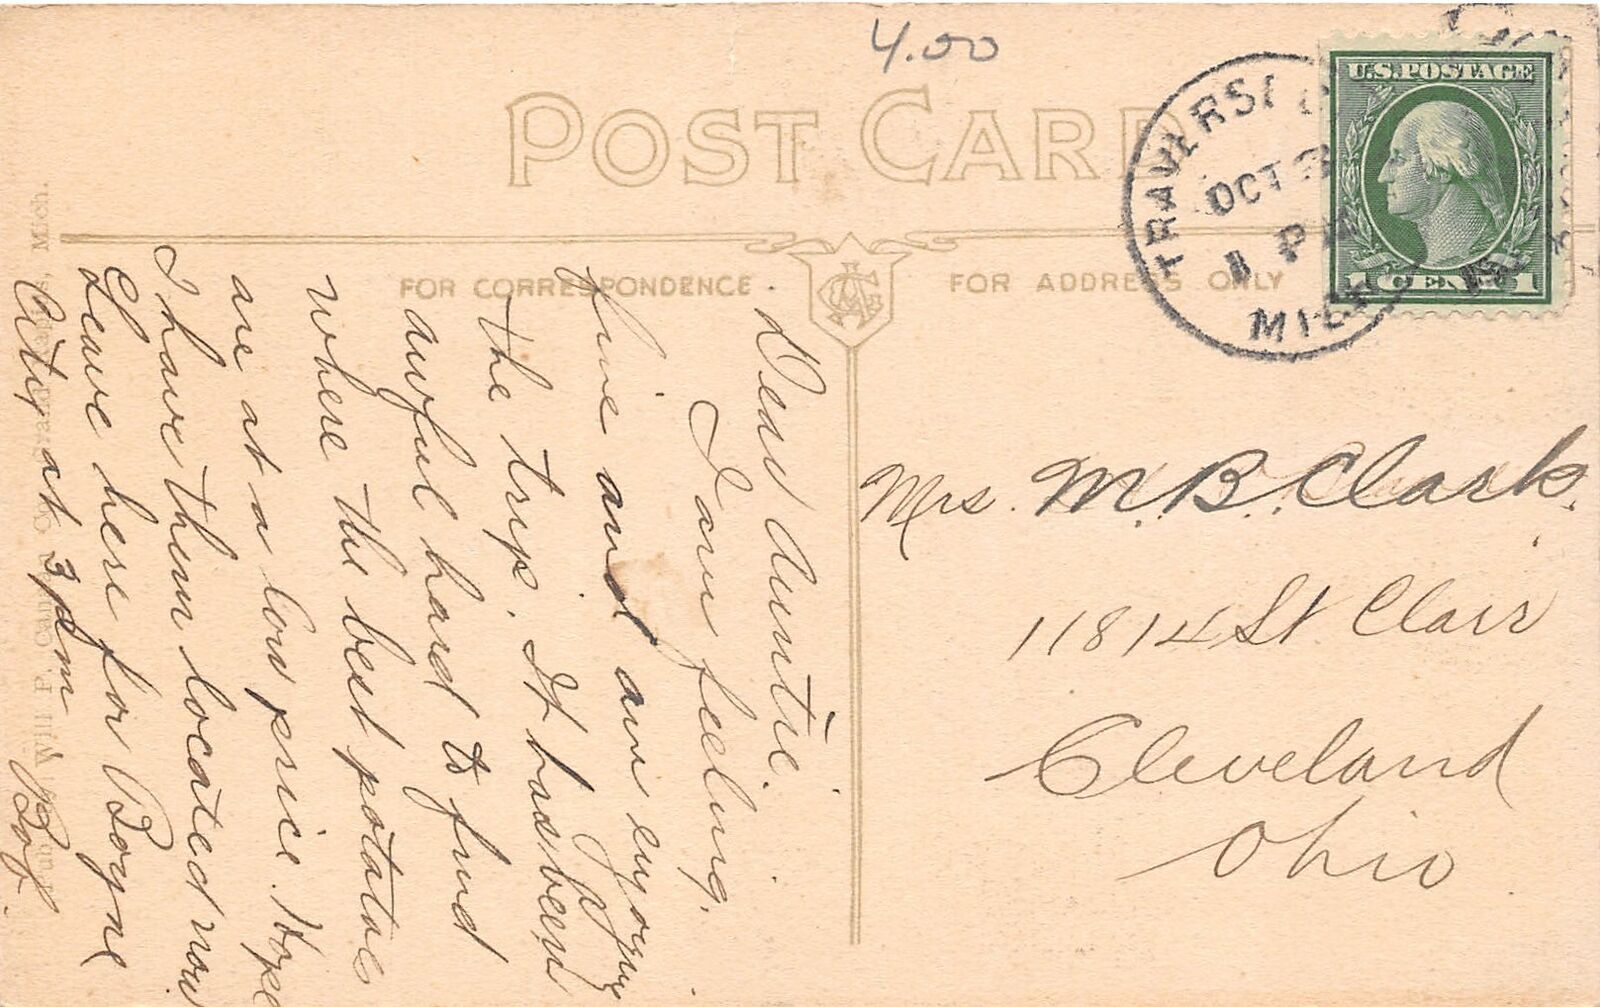 4.00
POST CARD
TRAVERSE
OCT
PM
MICH
U.S.POSTAGE
1 CENT 1
FOR CORRESPONDENCE
FOR ADDRESS ONLY
Dear Auntie.
I am feeling
fine and am enjoying
the trip. It has been
awful hard to find
where the best potatoes
are at a low price. Hope
I have them located now
Leave here for Boyne
City at 3 pm
Bob.
Mrs. M. B. Clark.
11814 St Clair
Cleveland
Ohio
Will P. Canfield Grand Rapids, Mich.